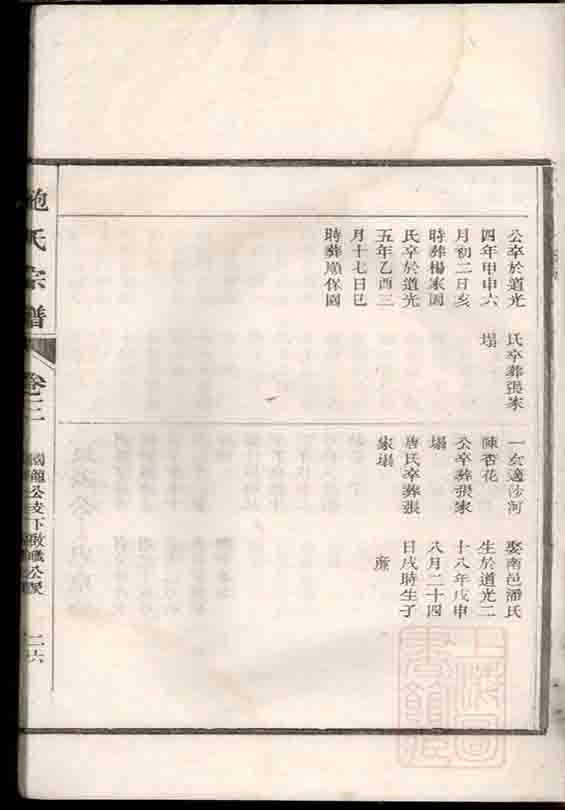 公卒於道光
四年甲申六
月初二日亥
時葬楊家園
氏卒於道光
五年乙酉三
月十七日巳
時葬順保園
氏卒葬張家
塌
一女適沙河
陳杏花
公卒葬張家
塌
唐氏卒葬張
家塌
娶南邑潘氏
生於道光二
十八年戊申
八月二十四
日戌時生子
鮑氏宗譜
卷三
國龍公支下
公案
二六
上海圖書館藏